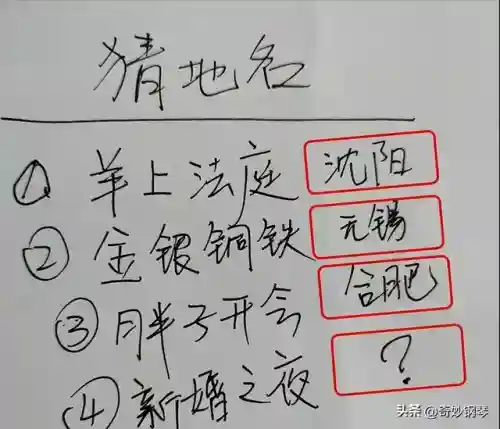 猜地名
① 羊上法庭 沈阳
② 金银铜铁 无锡
③ 胖子开会 合肥
④ 新婚之夜 ?
头条 @奇妙钢琴